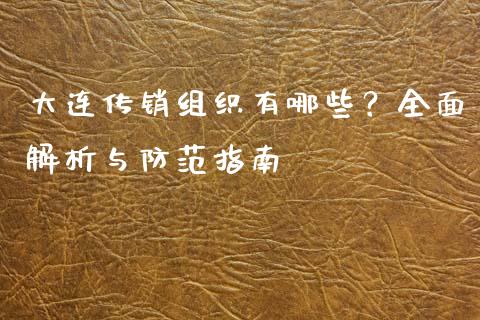 大连传销组织有哪些？全面
解析与防范指南